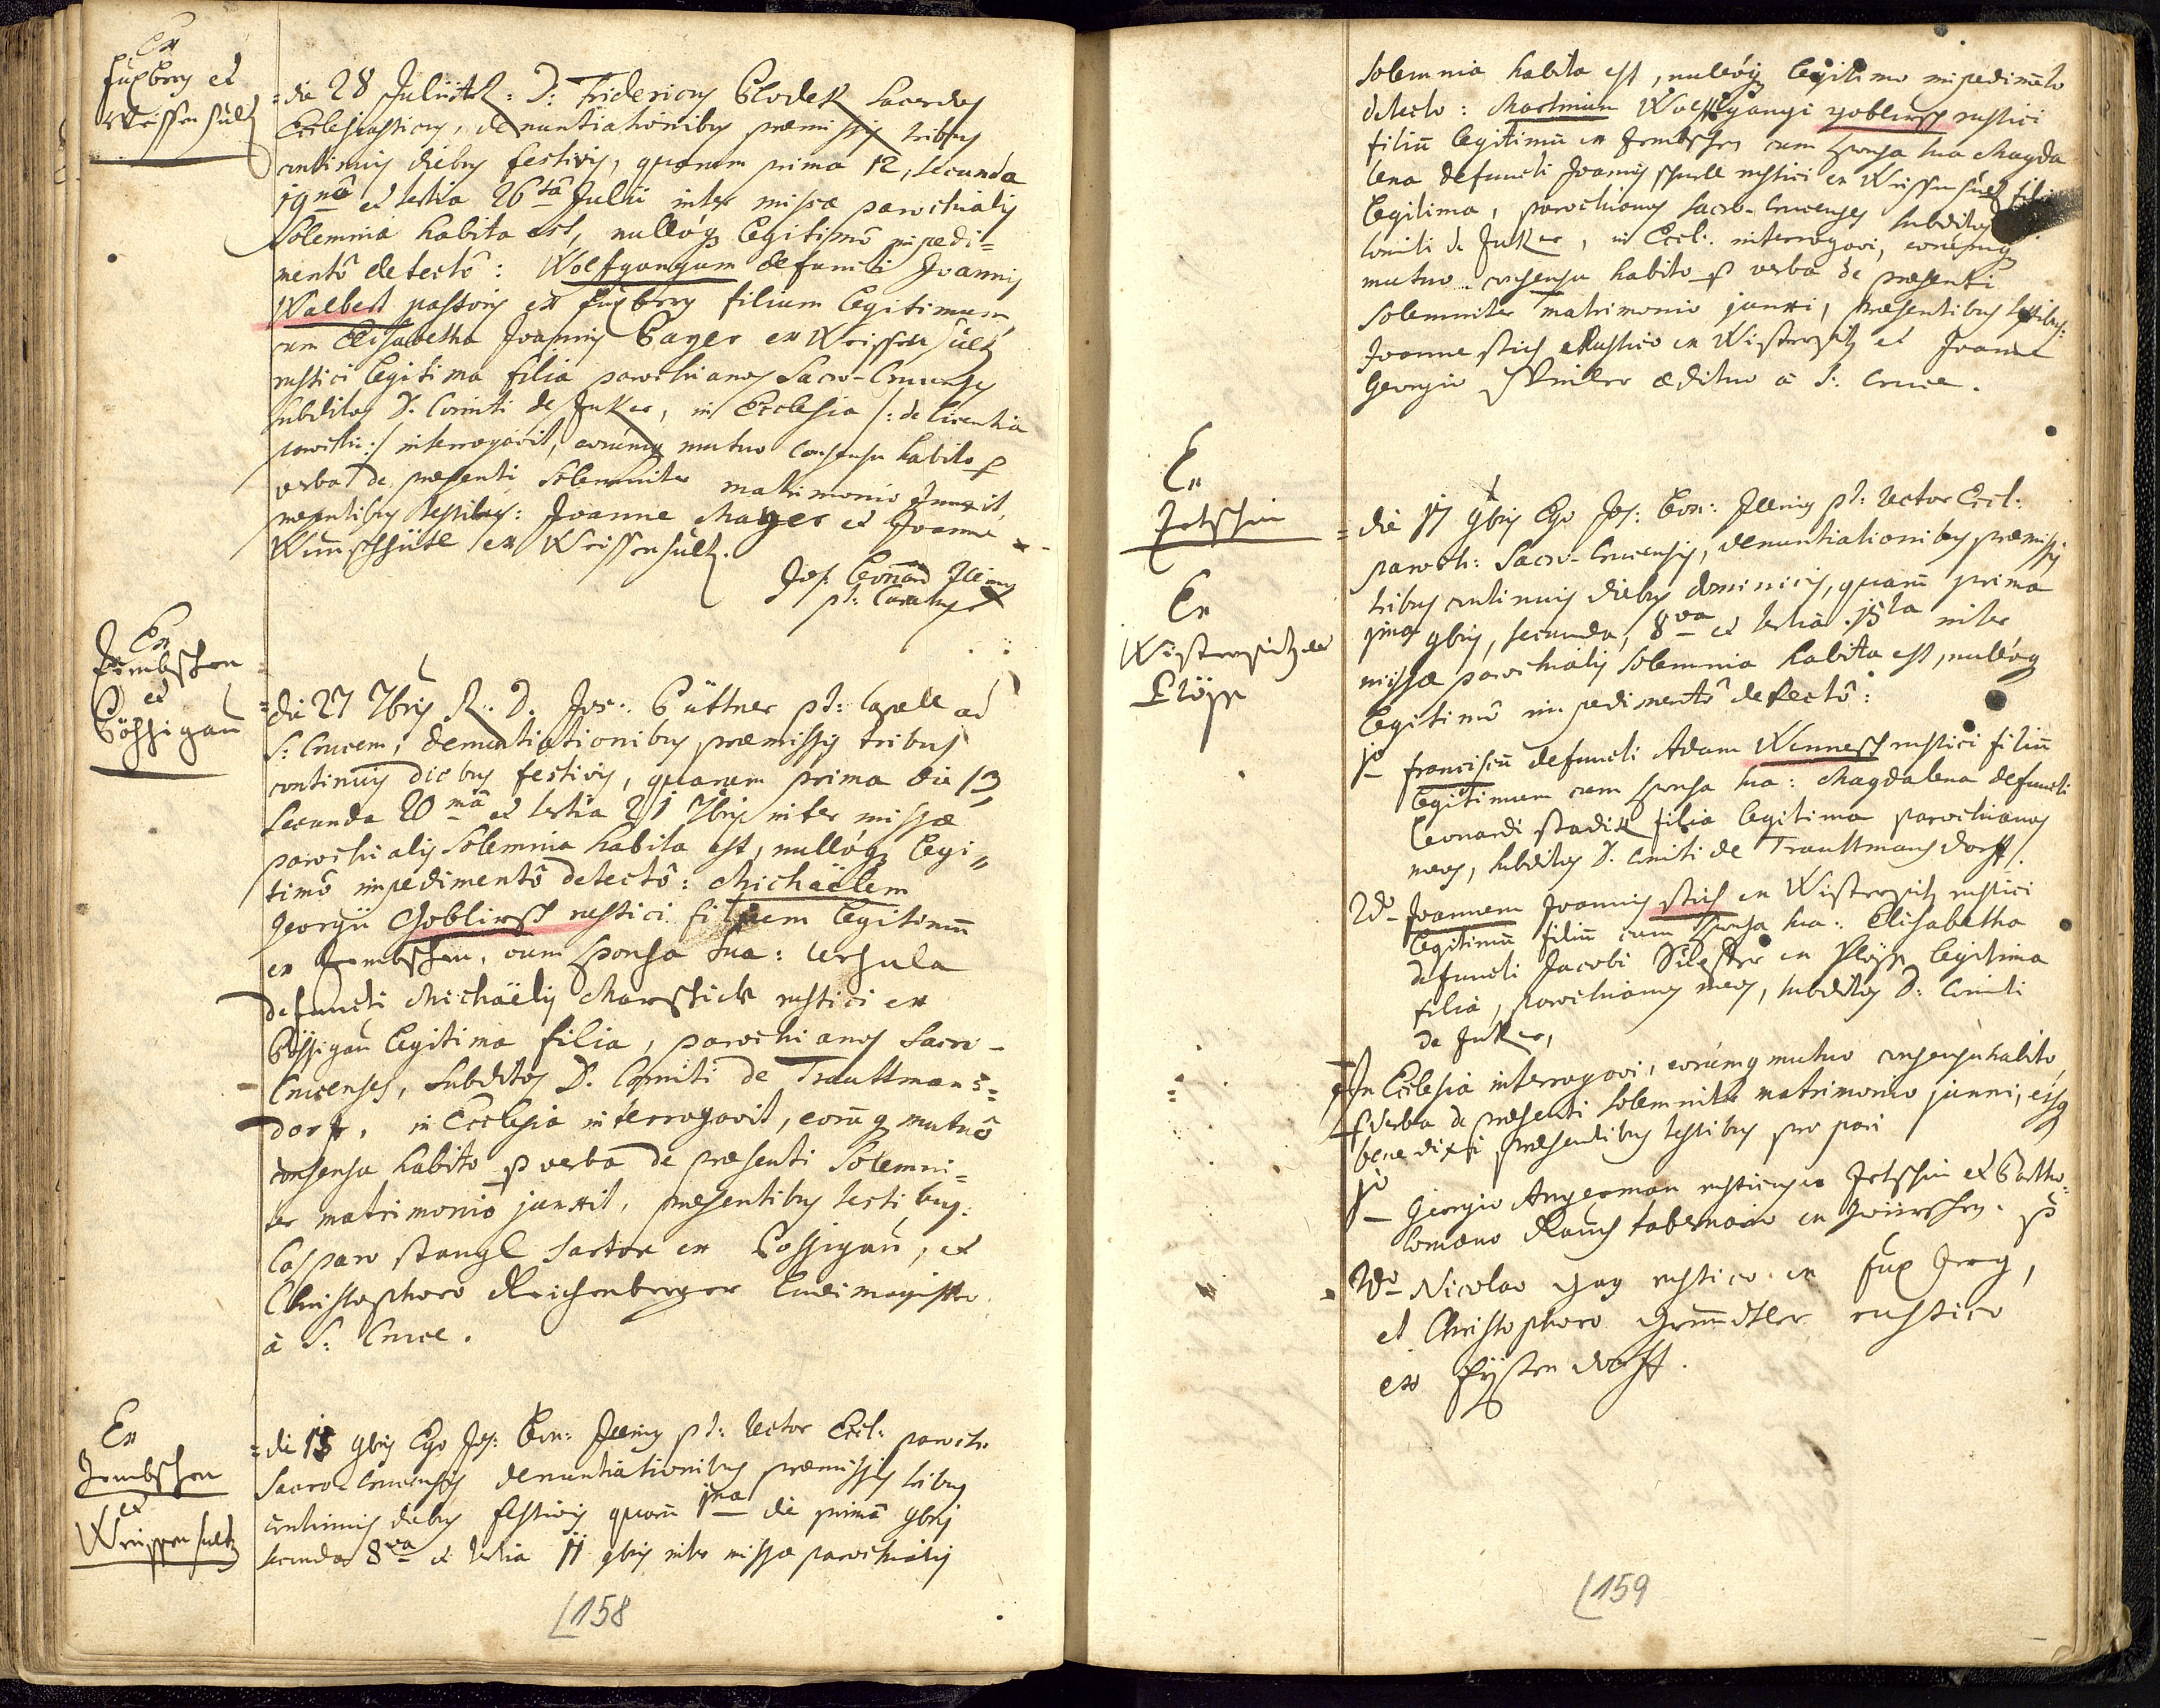 Ex
Fuxberg et
Weissensultz
die 28 Julii A.R: D: Fridericus Glodek Sacerdos
Ecclesiasticus, denuntiationibus præmissis tribus
continuis diebus festivis, quarum prima 12, secunda
19nâ et tertia 26tâ Julii inter missæ parochialis
Solemnia habita est, nullóq legitimô impedi=
mentô detectô: Wolfgangum defuncti Joannis
Walbert pastoris ex Fuxberg filium legitimum
cum Elisabetha Joannis Bager ex Weissensultz
rustici legitima filia parochianos Sacro-Crucenses
subditos D. Comiti de Junker, in Ecclesia /: de licentia
parochi:/ interrogavit, eorumq mutuo consensu habito p
verba de præsenti Solemniter matrimonio junxit,
præsentibus testibus: Joanne Mayer et Joanne
Wunschhüttl ex Weissensultz.
Jos: Leonard Illing
p:t: Curatus
Ex
Zembschen
et
Gössigau
die 27 7bris R. D. Jos: Büttner p:t: Capell ad
S: Crucem, denuntiationibus præmissis tribus
continuis diebus festivis, quarum prima die 13
secunda 20mâ et tertia 21 7bris inter missæ
parochialis Solemnia habita est, nullóq legi=
timô impedimentô detectô: Michaëlem
Georgii Goblirsch rustici filium legitimum
ex Zembschen, cum Sponsa sua: Ursula
defuncti Michaëlis Marschick rustici ex
Gössigau legitima filia, parochianos Sacro-
Crucenses, subditos D. Comiti de Trauttmans=
dorf, in Ecclesia interrogavit, eorumq mutuô
consensu habito p verba de præsenti Solemni=
ter matrimonio junxit, præsentibus testibus:
Casparo Stangl Sartor ex Gossigau, et
Christophoro Reichenberger Ludimagistro
à S: Cruce.
Ex
Zembschen
et
Weissensultz
die 15 9bris Ego Jos: Leon: Illing p:t: Rector Eccl: paroch:
Sacro-Crucensis denuntiationibus præmissis tribus
continuis diebus festivis quarum 1ma die prima 9bris
secunda 8va et tertia 11 9bris inter missæ parochialis
158
Solemnia habita est, nullóq legitimo impedimento
detecto: Martinum Wolffgangi Goblirsch rustici
filium legitimum ex Zembschen cum Sponsa sua Magda
lena defuncti Joannis rustici ex Weissensultz filia
legitima, parochianos Sacro-Crucenses subditos
Comiti de Junker, in Eccl: interrogavi, eorumq
mutuo consensu habito p verba de præsenti
Solemniter matrimonio junxi, præsentibus testibus:
Joanne Stich Rustico ex Wistersitz et Joanne
Georgio ædituo à S: Cruce.
Ex
Zetschin
Ex
Wistersitz et
Plöss
die 17 9bris Ego Jos: Leon: Illing p:t: Rector Eccl:
paroch: Sacro-Crucensis, denuntiationibus præmissis
tribus continuis diebus dominicis, quarum prima
1ma 9bris, secunda, 8va et tertia 15ta inter
missæ parochialis Solemnia habita est, nullóq
legitimô impedimentô detectô:
1o Franciscum defuncti Adam Wennesch rustici filium
legitimum cum Sponsa sua: Magdalena defuncti
Leonardi Stadik filia legitima parochianos
meos, subditos D. Comiti de Trauttmansdorff.
2do Joannem Joannis Stich ex Wistersitz rustici
legitimum filium cum Sponsa sua: Elisabetha
defuncti Jacobi ex Plöss legitima
filia, parochianos meos, subditos D: Comiti
de Junker,
In Ecclesia interrogavi, eorumq mutuo consensu habito,
p verba de præsenti Solemniter matrimonio junxi, eisq
benedixi præsentibus testibus pro pari
1o Georgio Angerman rustico ex Zetschin et Bartho=
lomæo Rauch tabernario ex
2do Nicolao Gag rustico ex Fuxberg,
et Christophoro Grundtler rustico
ex
159